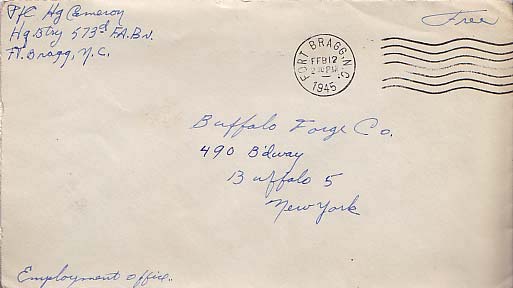 Pfc Hg Cameron
Hq Btry 573d F.A.Bn.
Ft. Bragg, N.C.
Free
FORT BRAGG. N.C.
FEB 12
2 30 PM
1945
Buffalo Forge Co.
490 B'dway
Buffalo 5
New York
Employment office.